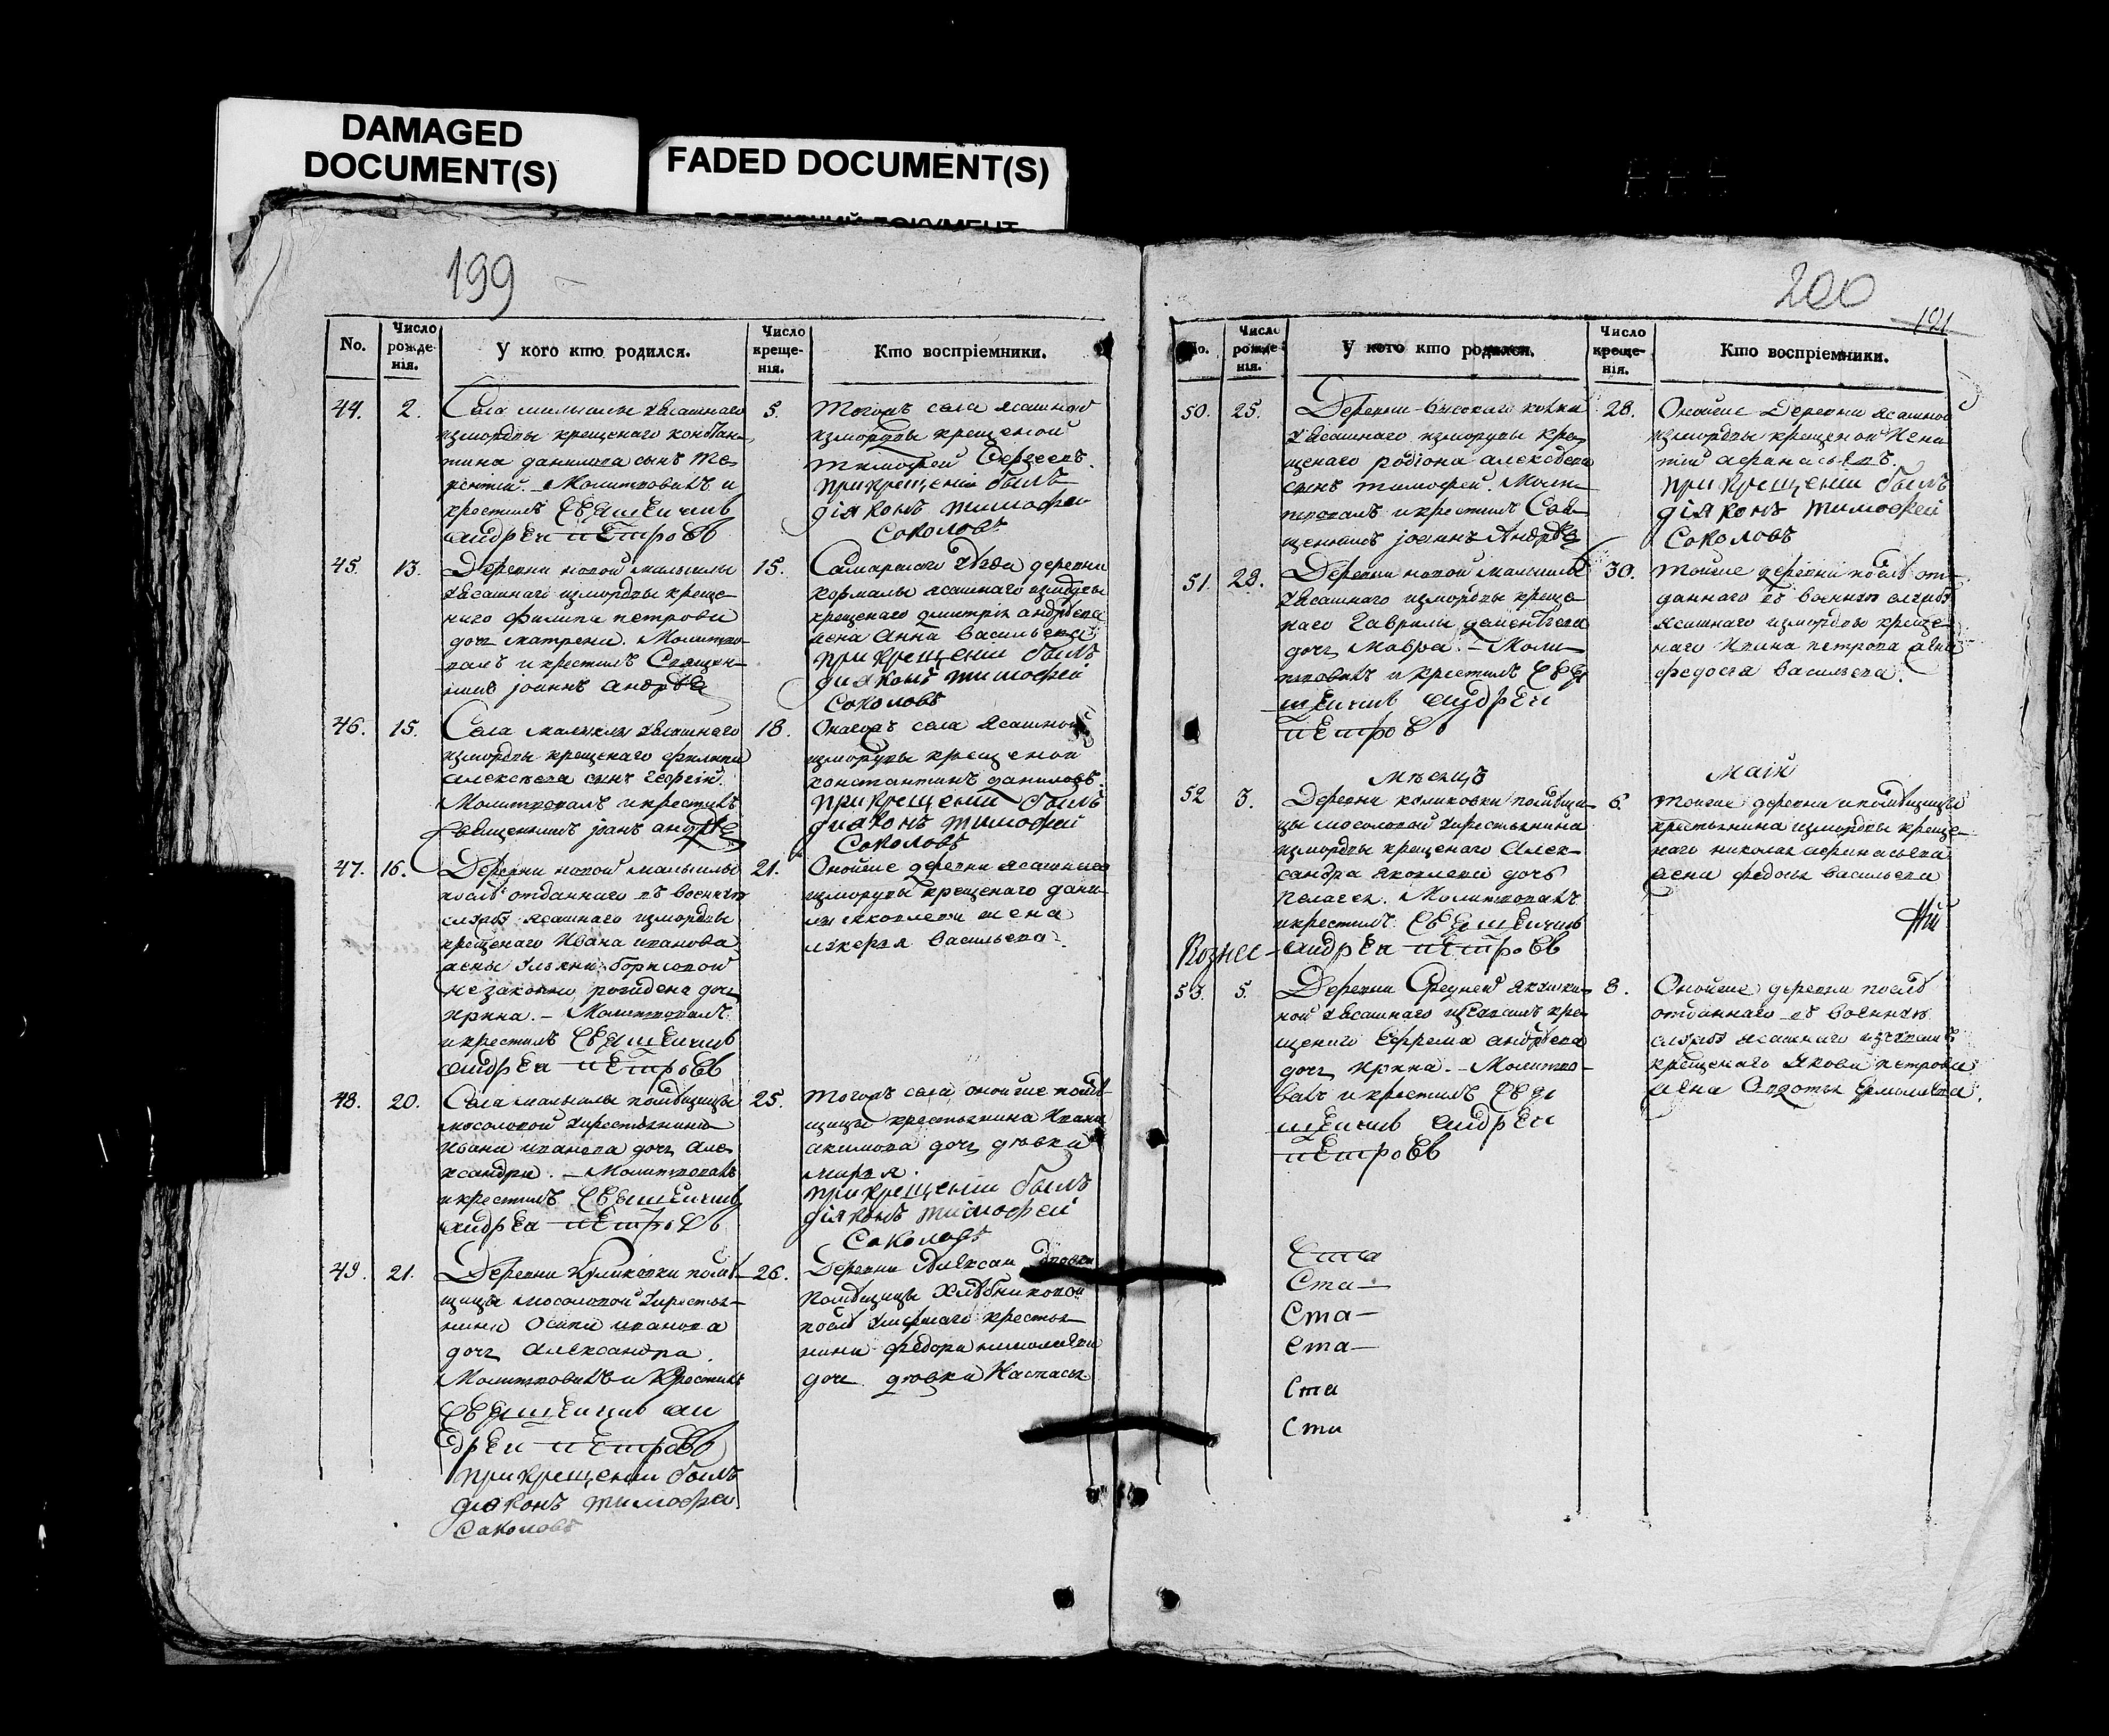 DAMAGED
DOCUMENT(S)
FADED DOCUMENT(S)
199
No.
Число
рожде-
нія.
У кого кто родился.
Число
креще-
нія.
Кто воспріемники.
44.
2.
Села малыклы уясашнаго
измордвы крещенаго констан-
тина данилова сынъ те-
рентій. Молитвовалъ и
крестилъ Священникъ
андреи петровъ
5.
Тогожъ села ясашной
измордвы крещеной
тимофей Сергеевъ.
при крещеніи былъ
діяконъ тимофеи
Соколовъ
45.
13.
Деревни новой малыклы
уясашнаго измордвы креще-
наго филипа петрова
дочь матрена. Молитво-
валъ и крестилъ Священ-
никъ іоаннъ андрѣе
15.
Самарскаго уѣзда деревни
кармалы ясашнаго измордвы
крещенаго дмитрія андрѣева
жена анна васильева
при крещеніи былъ
діяконъ тимофей
Соколовъ
46.
15.
Села малыклы уясашнаго
измордвы крещенаго филипа
алексѣева сынъ георгій.
Молитвовалъ и крестилъ
Священникъ іоанъ андрѣе
18.
Онагожъ села ясашной
измордвы крещеной
константинъ даниловъ.
при крещеніи былъ
діяконъ тимофей
Соколовъ
47.
16.
Деревни новой малыклы
послѣ отданнаго въ военную
службу ясашнаго измордвы
крещенаго Ивана иванова
жены ульяны борисовой
незаконно рождена дочь
ирина. – Молитвовалъ
и крестилъ Священникъ
андреи петровъ
21.
Оной же деревни ясашнаго
измордвы крещенаго дани-
ла яковлева жена
лукерья васильева.
48.
20.
Села малыклы помѣщицы
мосоловой укрестьянина
Ивана иванова дочь Але-
ксандра. – Молитвовалъ
и крестилъ Священникъ
андреи петровъ
25.
Тогожъ села оной же помѣ-
щицы крестьянина Ивана
акимова дочь дѣвка
марья.
при крещеніи былъ
діяконъ тимофей
Соколовъ
49.
21.
Деревни куликовки помѣ-
щицы мосоловой укрестья-
нина Осипа иванова
дочь Александра.
Молитвовалъ и крестилъ
Священникъ ан
дреи петровъ
при крещеніи былъ
діяконъ тимофеи
Соколовъ
26.
Деревни Александровки
помѣщицы Хлѣбниковой
послѣ умершаго крестья-
нина федора николаева
дочь дѣвка Настасья
200
121
No.
Число
рожде-
нія.
У кого кто родился.
Число
креще-
нія.
Кто воспріемники.
50.
25.
Деревни высокаго колка
уясашнаго измордвы кре-
щенаго родіона алексѣева
сынъ тимофей. Молит-
вовалъ и крестилъ Свя-
щенникъ іоаннъ Андрѣе
28.
Оной же деревни ясашной
измордвы крещеной Игна-
тій афанасьевъ.
при крещеніи былъ
діяконъ тимофей
Соколовъ
51.
28.
Деревни новой малыклы
уясашнаго измордвы креще-
наго гаврилы деменьтева
дочь мавра. – Моли-
твовалъ и крестилъ Свя
щенникъ андреи
петровъ
30.
Той же деревни послѣ от-
даннаго въ военную службу
ясашнаго измордвы креще-
наго Ивана петрова жена
федосья васильева.
мѣсяцъ
маій
52
3.
Деревни куликовки помѣщи-
цы мосоловой укрестьянина
измордвы крещенаго Алек-
сандра яковлева дочь
пелагея. Молитвовалъ
и крестилъ Священникъ
андреи петровъ
6.
Той же деревни и помѣщицы
крестьянина измордвы креще-
наго николая афанасьева
жена федосья васильева
Вознес-
ній
53.
5.
Деревни Средней якушки-
ной уясашнаго изчувашъ кре-
щенаго ефрема андрѣева
дочь ирина. – Молитво-
валъ и крестилъ Свя
щенникъ андреи
петровъ
8.
Оной же деревни послѣ
отданнаго въ военную
службу ясашнаго изчувашъ
крещенаго якова петрова
жена Авдотья Ермолаева.
Ста
Ста –
Ста –
Ста –
Ста
Ста